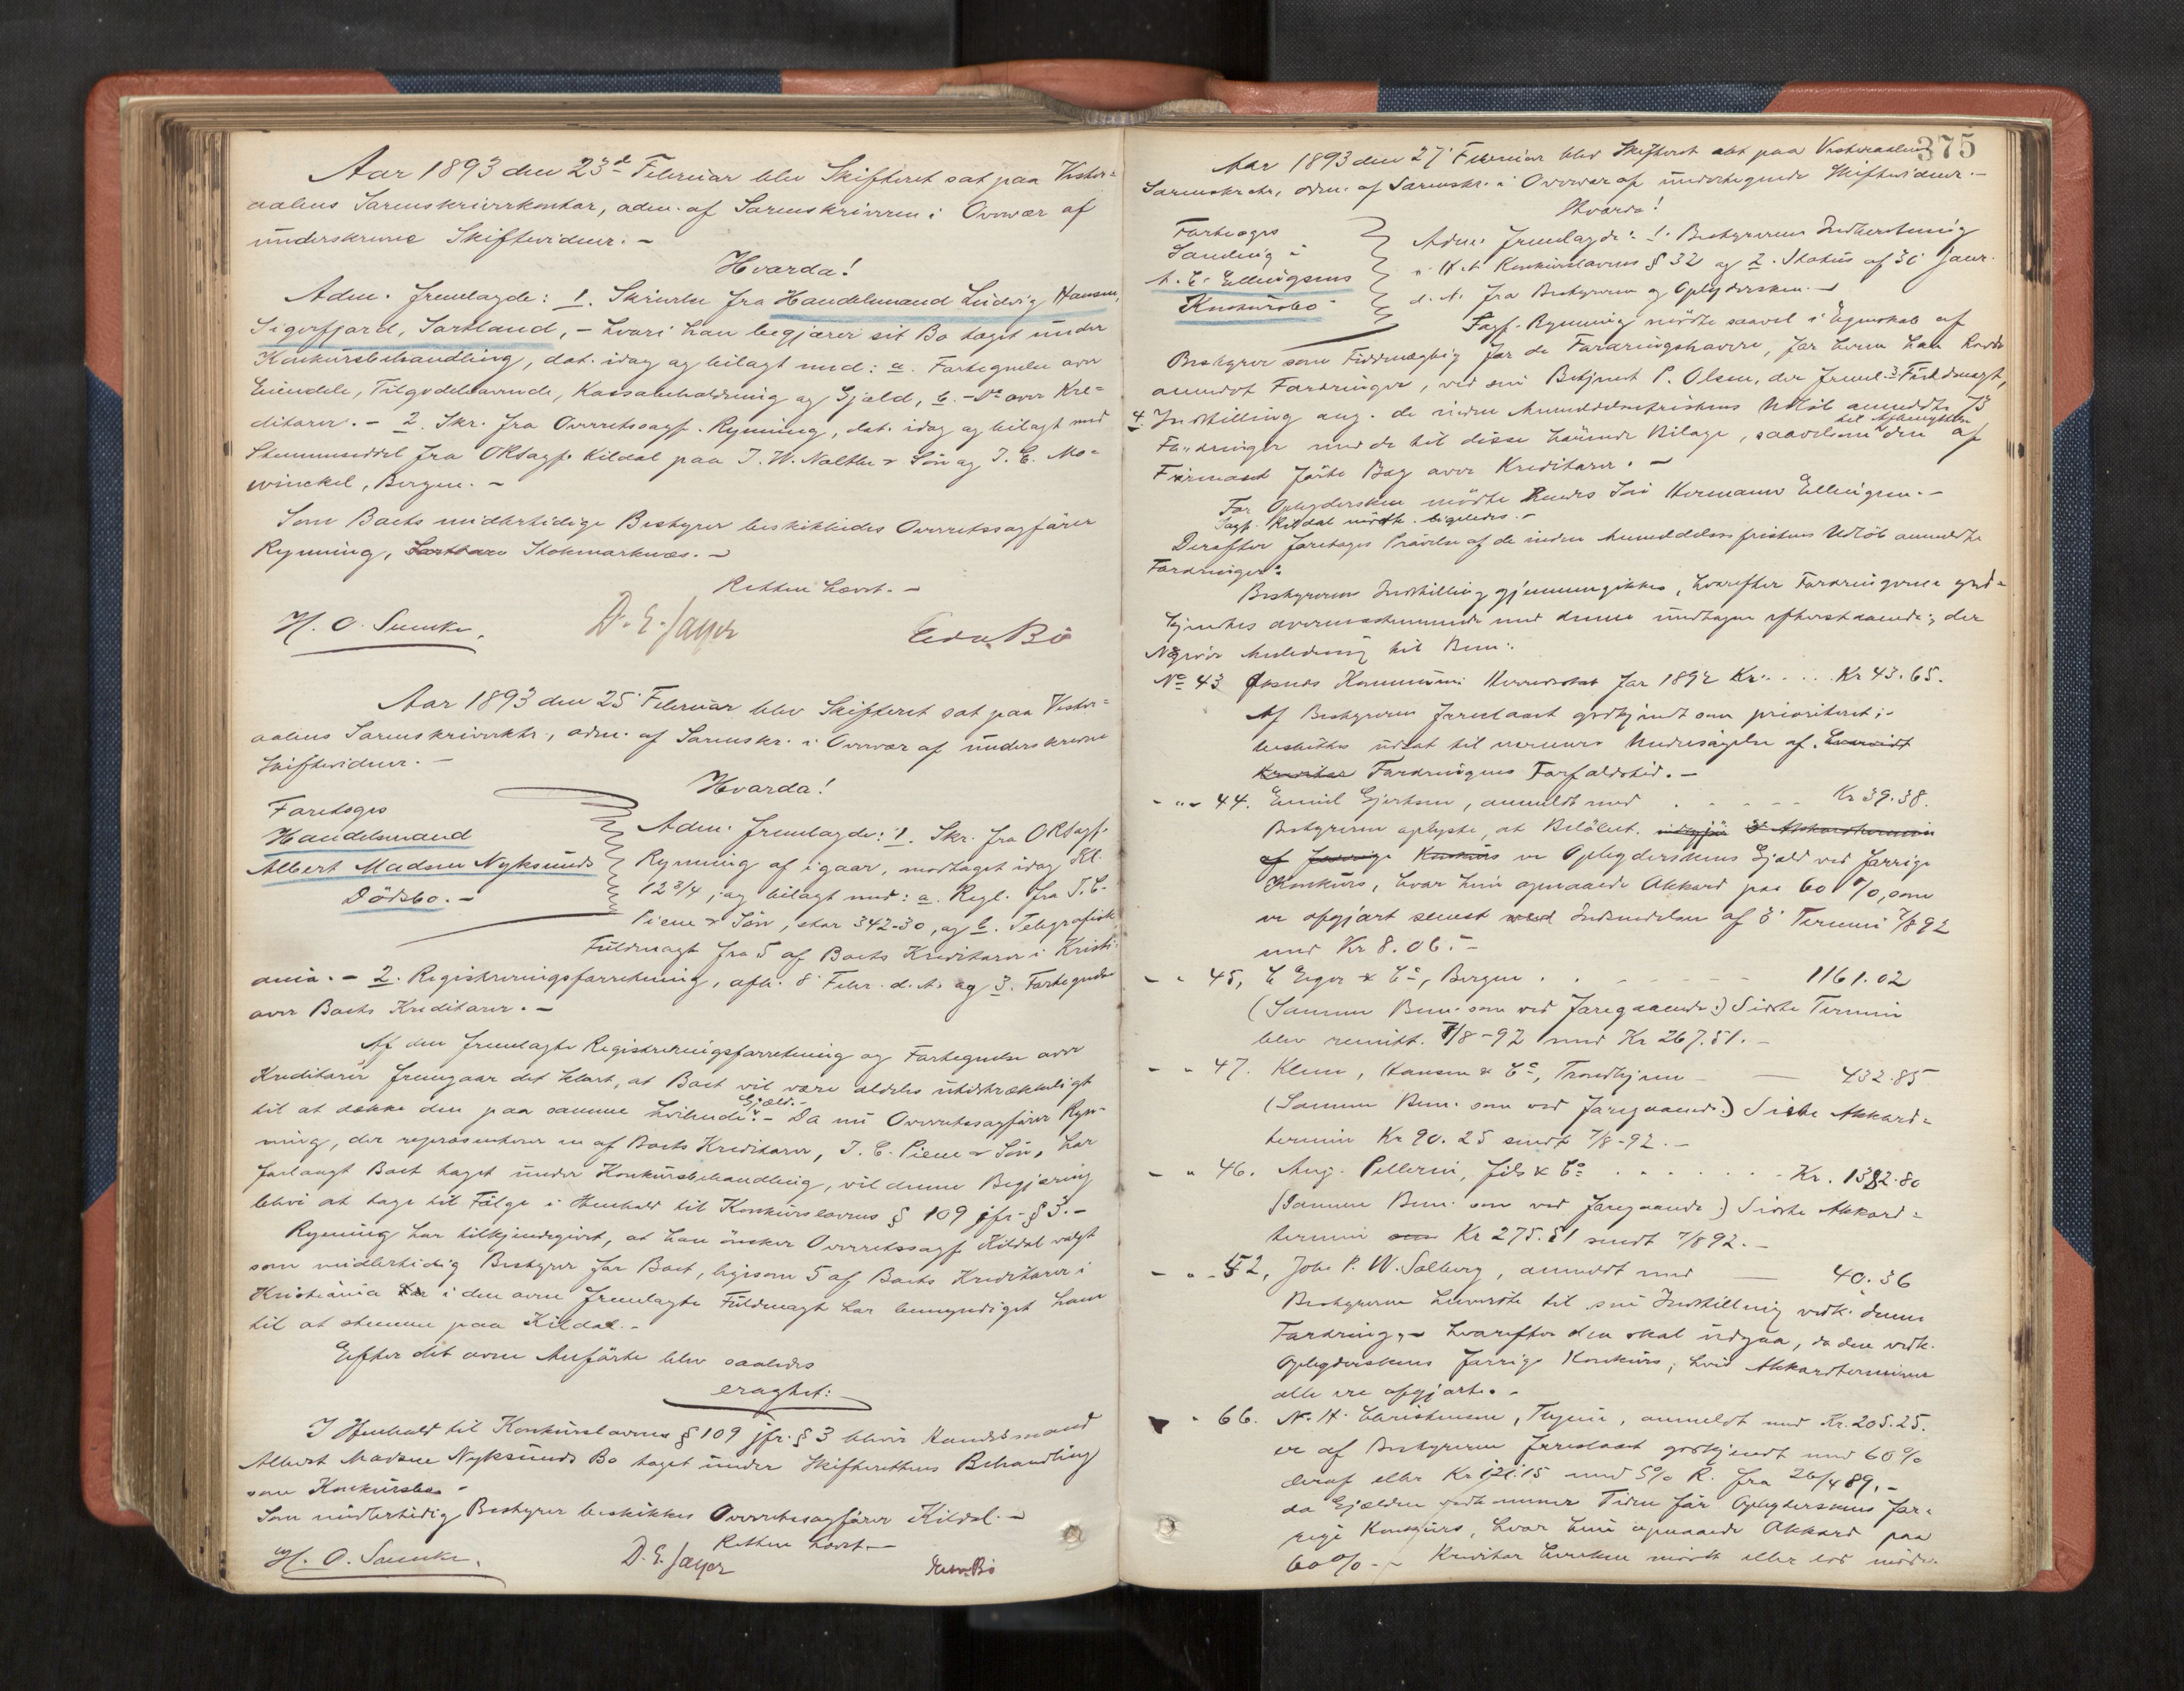 Aar 1893 den 23d Februar blev Skifteret sat paa Vester=
aalens Sorenskriverkontor, adm. af Sorenskriveren i Overvær af
underskrevne Skiftevidner. -
Hvorda!
Adm. fremlagde: 1. Skrivelse fra Handelsmand Ludvig Hansen,
Sigerfjord, Sortland, - hvori han begjærer sit Bo taget under
Konkursbehandling, dat. idag og bilagt med: a. Fortegnelse over
Eiendele, Tilgodehavende, Kassabeholdning og Gjæld, b. - Do over Kre=
ditorer. - 2. Skr. fra Overretssagf. Rynning, dat. idag og bilagt med
Stemmeseddel fra ORsagf. Kildal paa J. W. Nolthe & Søn og J. E. Mo=
winckel, Bergen. -
Som Boets midlertidige Bestyrer beskikkedes Overretssagfører
Rynning, Stokmarknæs. -
Retten hævet. -
H. O. Suncke. D. E. Sayer Edv. Bö
Aar 1893 den 25' Februar blev Skifteret sat paa Vester=
aalens Sorenskriverktr., adm. af Sorenskr. i Overvær af underskrevne
Skiftevidner. -
Hvorda!
Foretoges
Handelsmand
Albert Madsen Nyksunds
Dödsbo. -
Adm. fremlagde: 1. Skr. fra ORsagf.
Rynning af igaar, modtaget idag Kl.
12 3/4, og bilagt med: a. Regl. fra J. C.
Piene & Søn, stor 342-30, og b. Telegrafisk
Fuldmagt fra 5 af Boets Kreditorer i Kristi=
ania. - 2. Registreringsforretning, afh. 8' Febr. d. A. og 3. Fortegnelse
over Boets Kreditorer. -
Af den fremlagte Registreringsforretning og Fortegnelse over
Kreditorer fremgaar det klart, at Boet vil være aldeles utilstrækkeligt
til at dække den paa samme hvilende Gjæld. - Da nu Overretssagfører Ryn=
ning, der repræsenterer en af Boets Kreditorer, J. C. Piene & Søn, har
forlangt Boet taget under Konkursbehandling, vil denne Begjæring
blive at tage til Følge i Henhold til Konkurslovens § 109 jfr. § 3. -
Rynning har tilkjendegivet, at han ønsker Overretssagf. Kildal valgt
som midlertidig Bestyrer for Boet, ligesom 5 af Boets Kreditorer i
Kristiania i den oven fremlagte Fuldmagt har bemyndiget ham
til at stemme paa Kildal. -
Efter det oven Anførte blev saaledes
eragtet:
I Henhold til Konkurslovens § 109 jfr. § 3 bliver Handelsmand
Albert Madsen Nyksunds Bo taget under Skifterettens Behandling
som Konkursbo. -
Som midlertidig Bestyrer beskikkes Overretssagfører Kildal. -
Retten hævet. -
H. O. Suncke. D. E. Sayer Edv. Bö
375
Aar 1893 den 27' Februar blev Skifteret sat paa Vesteraalens
Sorenskrktr., adm. af Sorenskr. i Overvær af undertegnede Skiftevidner. -
Hvorda!
Foretoges
Samling i
A. E. Ellingsens
Konkursbo
Adm. fremlagde: 1. Bestyrerens Indberetning
i H. t. Konkurslovens § 32 og 2. Status af 30 Janr.
d. A. fra Bestyreren og Opbydersken. -
Sagf. Rynning mødte saavel i Egenskab af
Bestyrer som Fuldmægtig for de Fordringshavere, for hvem han havde
anmeldt Fordringer, ved sin Betjent P. Olsen, der freml. 3. Fuldmagt,
4. Indstilling ang. de inden Anmeldelsesfristens Udløb anmeldte 73
Fordringer med de til disse hørende Bilage, saavelsom den til Afbenyttelse af
Firmaet førte Bog over Kreditorer. -
For Opbydersken mødte hendes Søn Hermann Ellingsen. -
Sagf. Kildal mødte ligeledes. -
Derefter foretoges Prøvelse af de inden Anmeldelsesfristens Udløb anmeldte
Fordringer:
Bestyrerens Indstilling gjennemgikkes, hvorefter Fordringerne god=
kjendtes overensstemmende med denne undtagen efterstaaende, der
giver Anledning til Bem:
No 43 Øksnes Kommune Herredsskat for 1892 Kr. . . . Kr 43.65.
Af Bestyreren foreslaaet godkjendt som prioriteret;-
besluttes udsat til nærmere Undersøgelse af
Fordringens Forfaldstid. -
- " - 44. Emil Gjertsen, anmeldt med . - - - Kr 39.38.
Bestyreren oplyste, at Beløbet
er Opbyderskens Gjæld ved forrige
Konkurs, hvor hun opnaaede Akkord paa 60 %, som
er opgjort senest ved Indsendelse af 8' Termin 7/8 92
med Kr 8.06. -
- " 45, C Eger & Co, Bergen . . - - - 1161.02
(Samme Bem. som ved Foregaaende.) Sidste Termin
blev remitt. 7/8-92 med Kr 267.51. -
- " 47. Klem, Hansen & Co, Trondhjem - — 432.85
(Samme Bem. som ved Foregaaende.) Sidste Akkord=
termin Kr 90.25 sendt 7/8-92. -
- " 46. Aug. Pellerin, fils & Co . . . . . . Kr. 1382.80
(Samme Bem. som ved Foregaaende.) Sidste Akkord=
termin Kr 275.51 sendt 7/8 92. -
- " - 52, Joh. P. W. Solberg, anmeldt med — 40.36
Bestyreren henviste til sin Indstilling vedk. denne
Fordring, - hvorefter den skal udgaa, da den vedk.
Opbyderskens forrige Konkurs, hvis Akkordterminer
alle ere opgjorte. -
" 66. N. H. Christensen, Thynie, anmeldt med Kr. 205.25.
er af Bestyreren foreslaaet godkjendt med 60 %
deraf eller Kr 121.15 med 5 % R. fra 26/4 89, -
da Gjælden vedkommer Tiden før Opbyderskens for=
rige Konkurs, hvor hun opnaaede Akkord paa
60 %. - Kreditor hverken mødt eller lod møde.